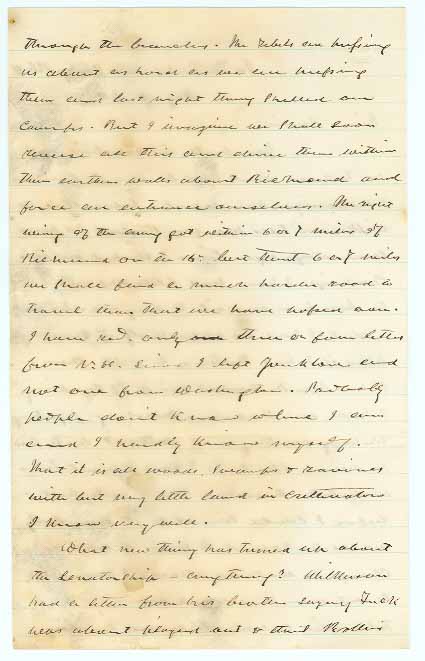 through the branches. The rebels are pressing
us about as hard as we are pressing
them and last night they shelled our
camps. But I imagine we shall soon
reverse all this and drive them within
their earthen walls about Richmond and
force an entrance ourselves. The right
wing of the army got within 6 or 7 miles of
Richmond on the 16th but that 6 or 7 miles
we shall find a much harder road to
travel than that we have passed over.
I have recd. only three or four letters
from N.H. since I left and
not one from Washington. Probably
people don't know where I am
and I hardly know myself.
That it is all woods, swamps & ravines
with but very little land in cultivation
I know very well.
What new thing has turned up about
the Senatorship - anything? Wilkinson
had a letter from his brother saying Tuck
was about played out & that Rollins